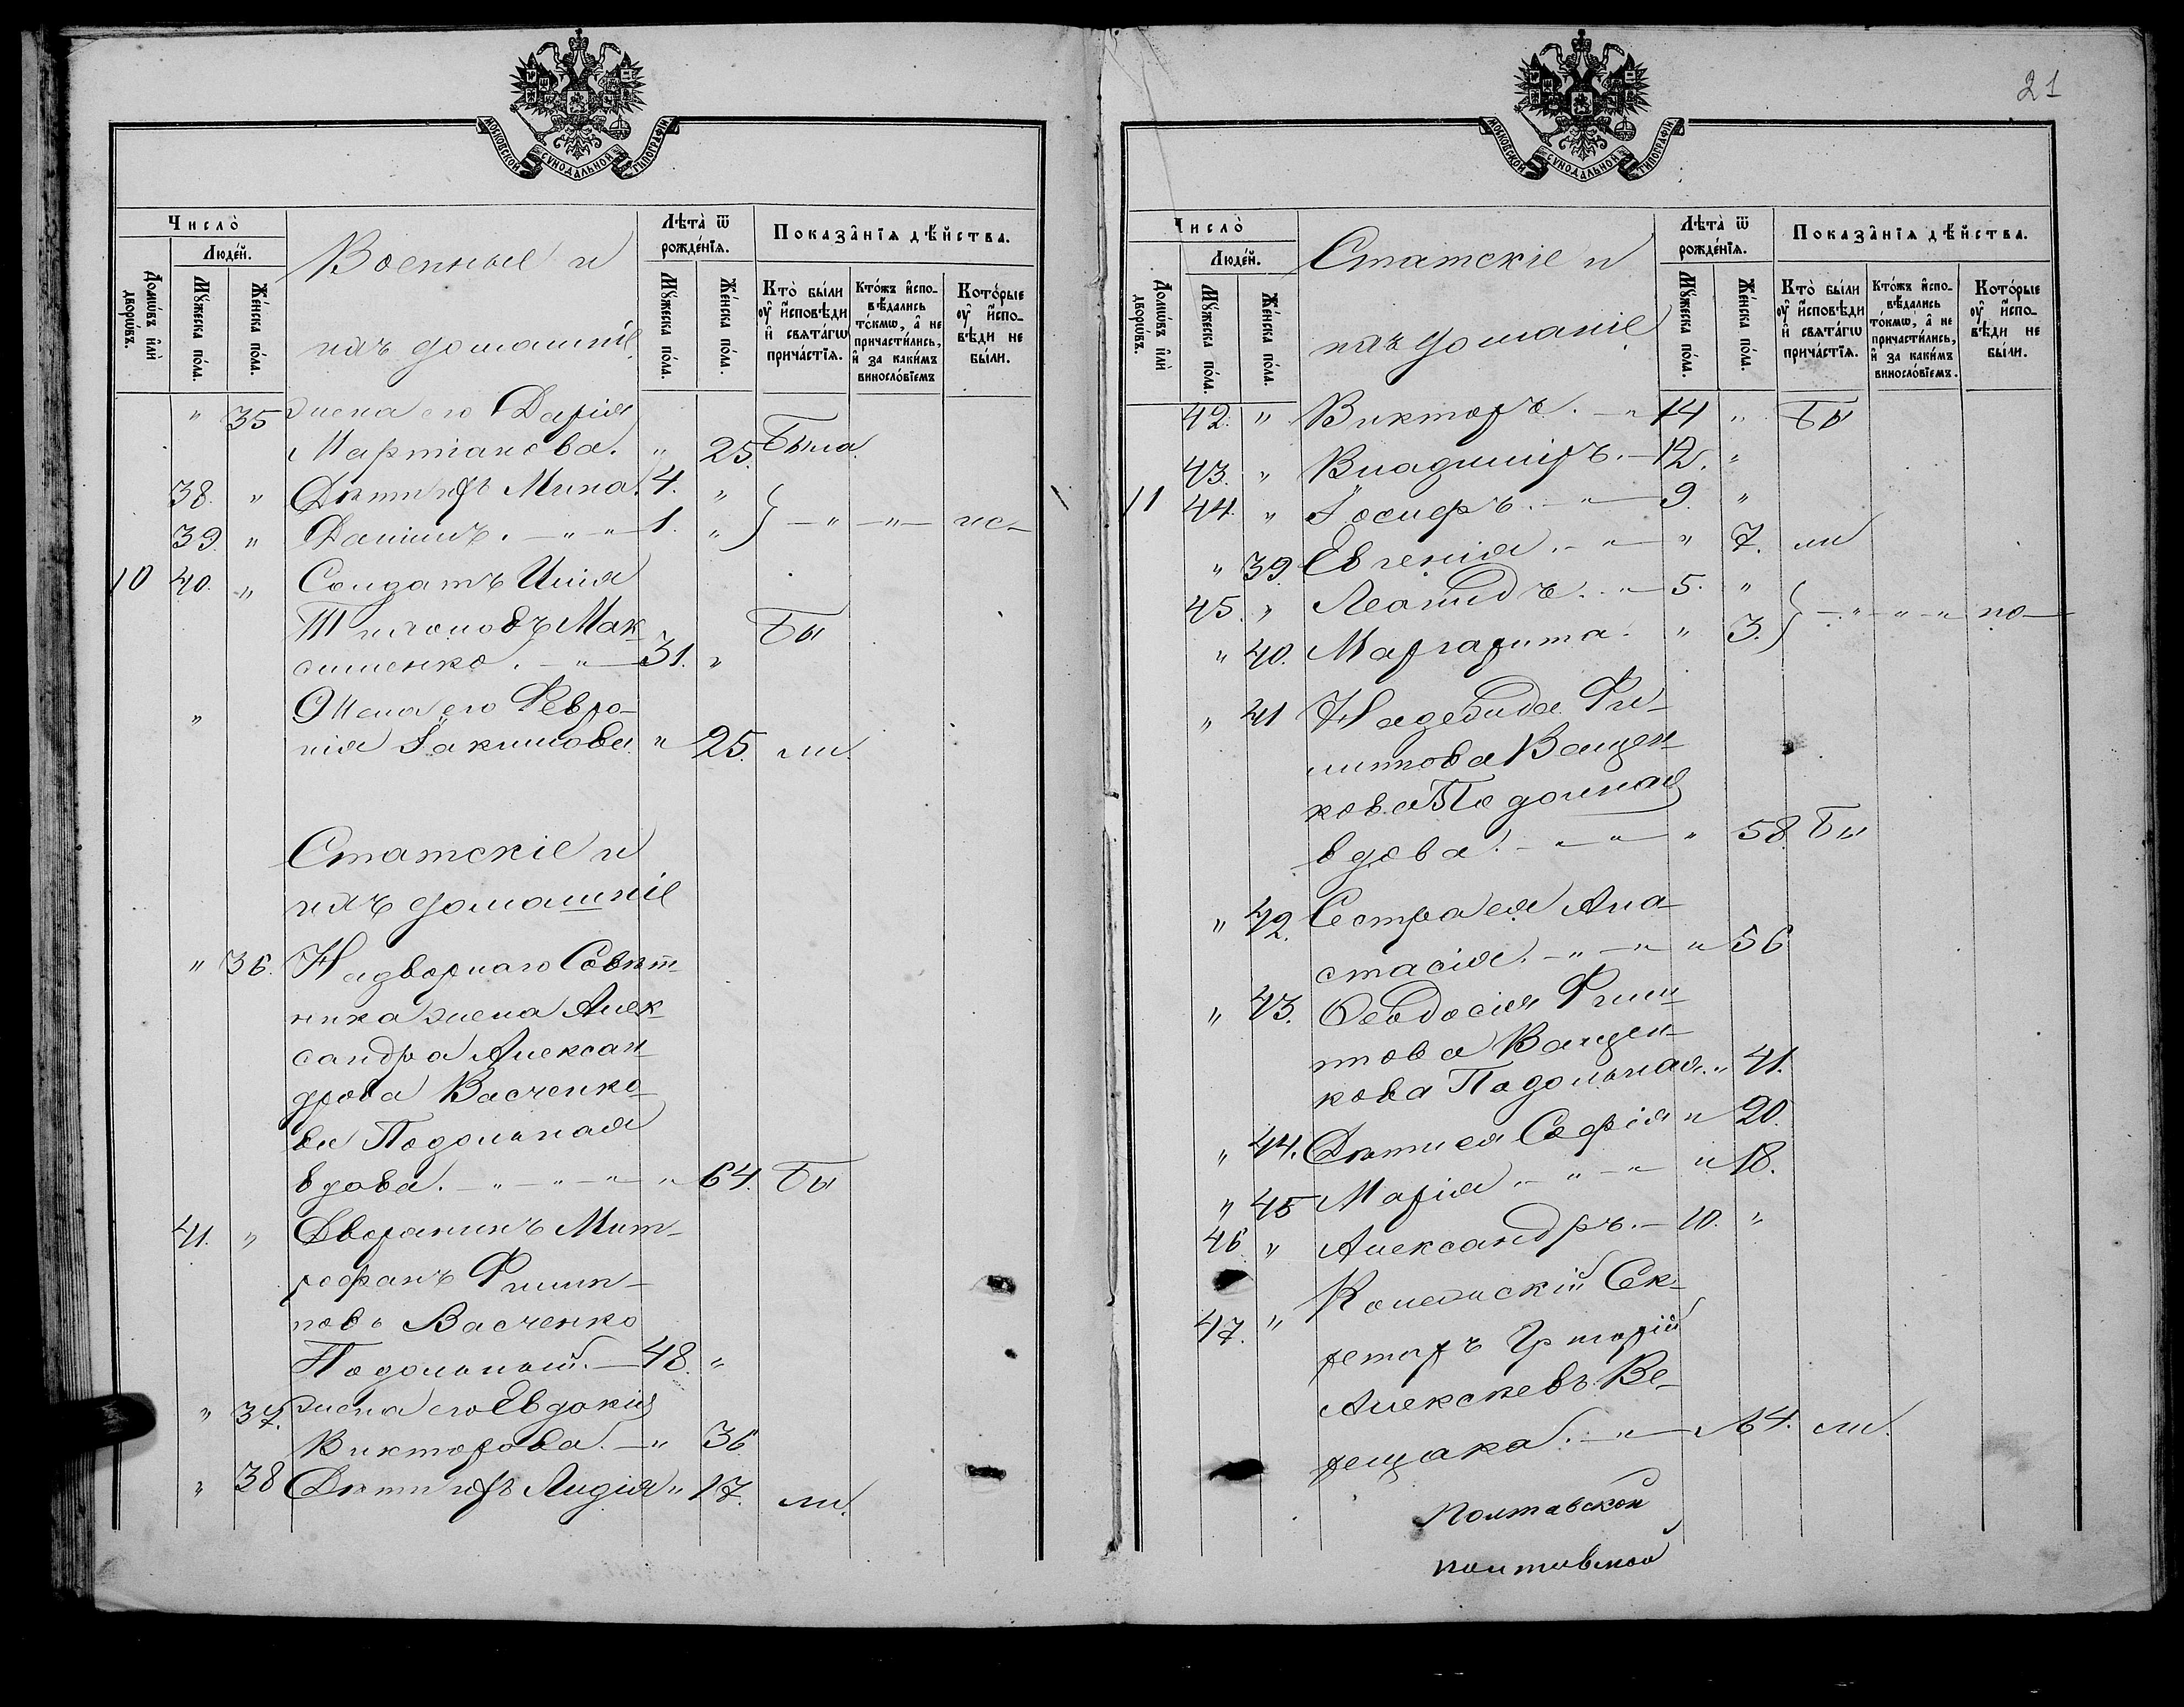 МОСКОВСКОЙ СѴНОДАЛЬНОЙ ТИПОГРАФІИ
Число̀
Людéй.
Домѡ́въ и҆лѝ дворѡ́въ.
Мꙋ́жеска по́ла.
Же́нска по́ла.
Военные и
ихъ домашніе
Лѣта̀ ѿ рожде́нїѧ.
Мꙋ́жеска по́ла.
Же́нска по́ла.
Показа̂нїѧ дѣ́йства.
Кто̀ бы́ли оу҆ и҆сповѣди и҆ свѧта́гѡ прича́стїѧ.
Кто́жъ и҆спо-вѣдались то́кмѡ, а҆ не причасти́лись, и҆ за каки́мъ виносло́вїемъ
Кото́рые оу҆ и҆спо-вѣди не бы́ли.
" 35 жена его Дарія
Мартіанова. " 25. Была
38. " Дѣти ихъ Мина. 4. "
39. " Даніилъ. - " - " - 1. " } - " - " - ис-
10 40. " Солдатъ Илія
Мак-
сименко. - " - 31. " Бы
" Жена его Февро-
нія Іакимова " 25. ли.
Статскіе и
ихъ домашніе
" 36. Надворнаго Совѣт-
ника жена Алек-
сандра Алексан-
дрова Васченко-
ва Подольная
вдова. - " - " - " - " 64. Бы
41. " Дворянинъ Мит-
рофанъ Филип-
повъ Васченко
Подольный. - 48. "
" 37. жена его Евдокія
Викторова. - " 36
" 38 Дѣти ихъ Лидія " 17. ли.
21
МОСКОВСКОЙ СѴНОДАЛЬНОЙ ТИПОГРАФІИ
Число̀
Людéй.
Домѡ́въ и҆лѝ дворѡ́въ.
Мꙋ́жеска по́ла.
Же́нска по́ла.
Статскіе и
ихъ доманіе
Лѣта̀ ѿ рожде́нїѧ.
Мꙋ́жеска по́ла.
Же́нска по́ла.
Показа̂нїѧ дѣ́йства.
Кто̀ бы́ли оу҆ и҆сповѣди и҆ свѧта́гѡ прича́стїѧ.
Кто́жъ и҆спо-вѣдались то́кмѡ, а҆ не причасти́лись, и҆ за каки́мъ виносло́вїемъ.
Кото́рые оу҆ и҆спо-вѣди не бы́ли.
42. " Викторъ. - " 14 " Бы
43. " Владиміръ. - 12. "
11 44. " Іосифъ. - " - 9. "
" 39. Евгенія. - " - " 7. ли
45. " Леонидъ. - " 5. "
" 40. Маргарита. " 3. } - " - " - " по-
" 41 Надежда Фи-
липпова Ващен-
кова Подолная
вдова. - " - " - " 58 Бы
" 42. Сестра ея Ана-
стасія. - " - " " 56
" 43. Феодосія Фили-
пова Ващен-
кова Подольная. " 41.
" 44. Дѣти ея Софія " 20.
" 45 Марія - " - " " 18.
46 " Александръ. - 10. "
47. " Колежскій Сек-
ретарь Григорій
Алексѣевъ Ве-
рещака. - " - 64. ли.
Полтавской
полтавской